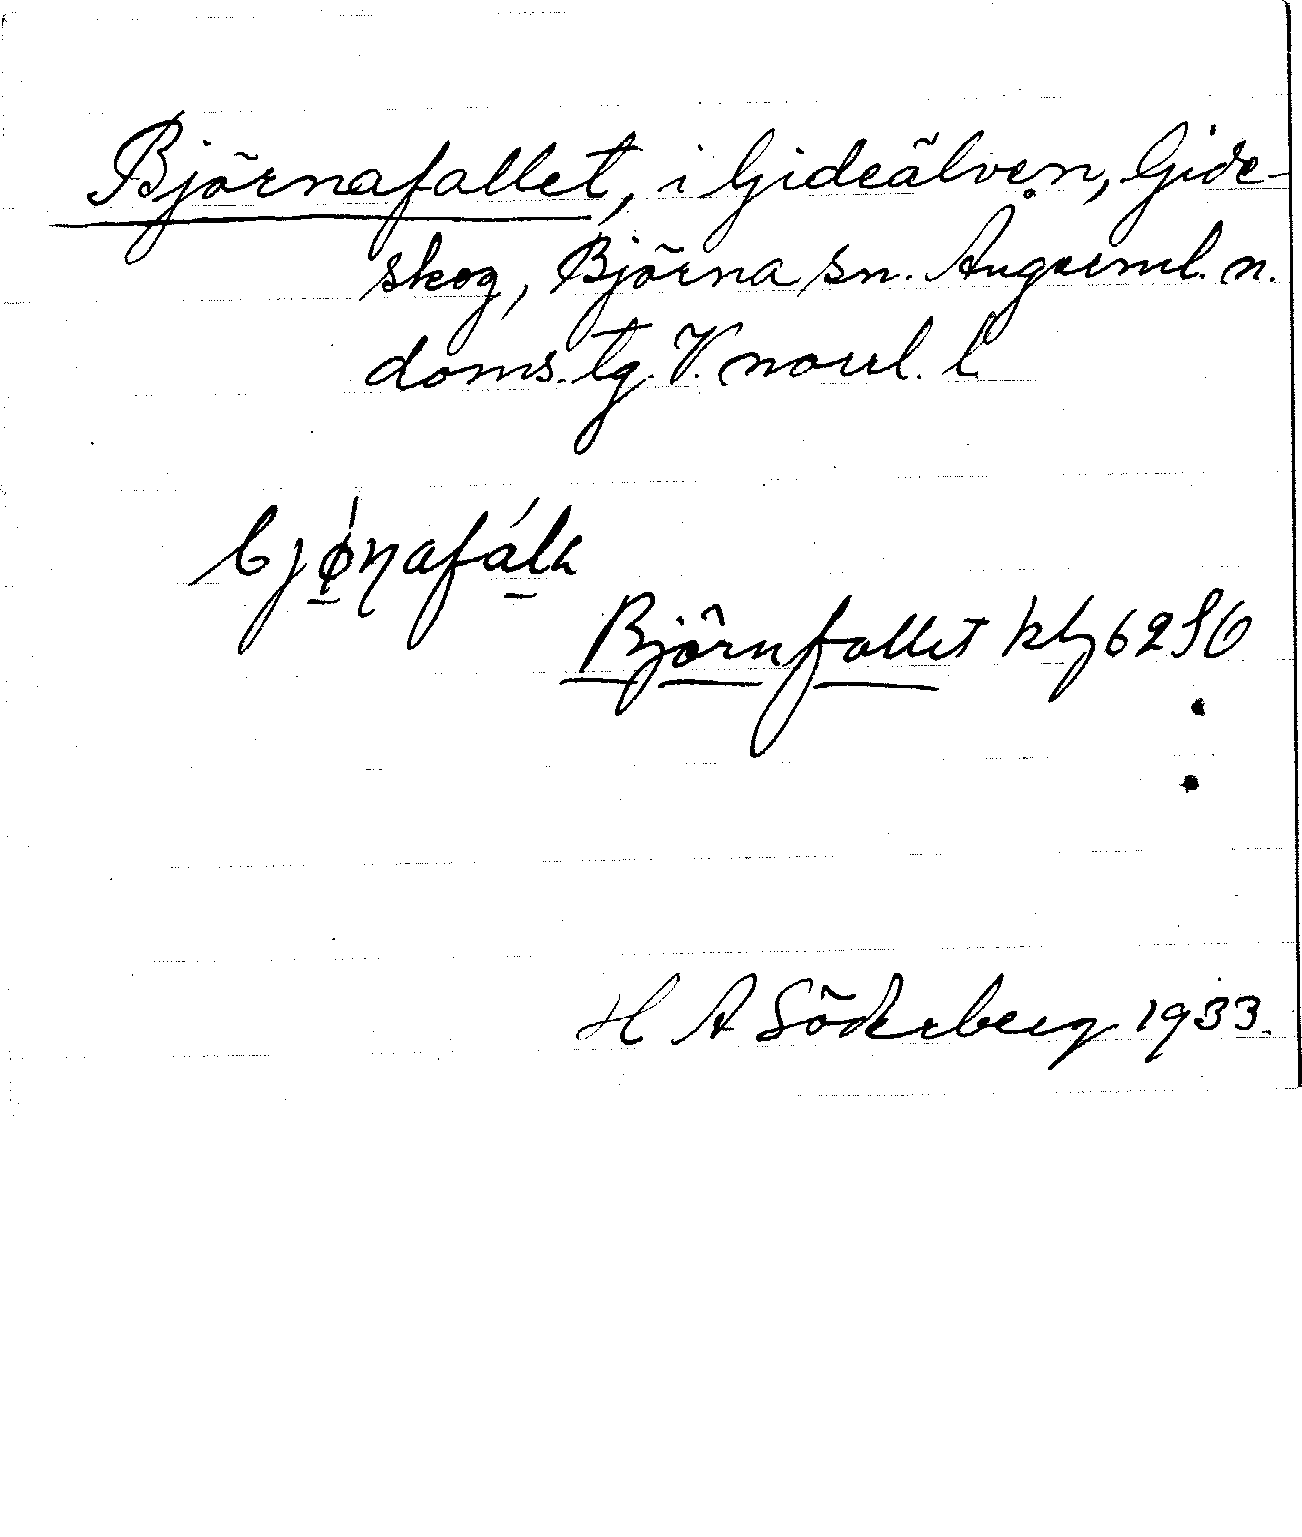 Björnafallet, i Gideälven, Gide-
skog, Björna sn. Ångerml. n.
doms. tg. V. norrl. l
Björnfallet kbl 62 SO
H A Söderberg 1933.